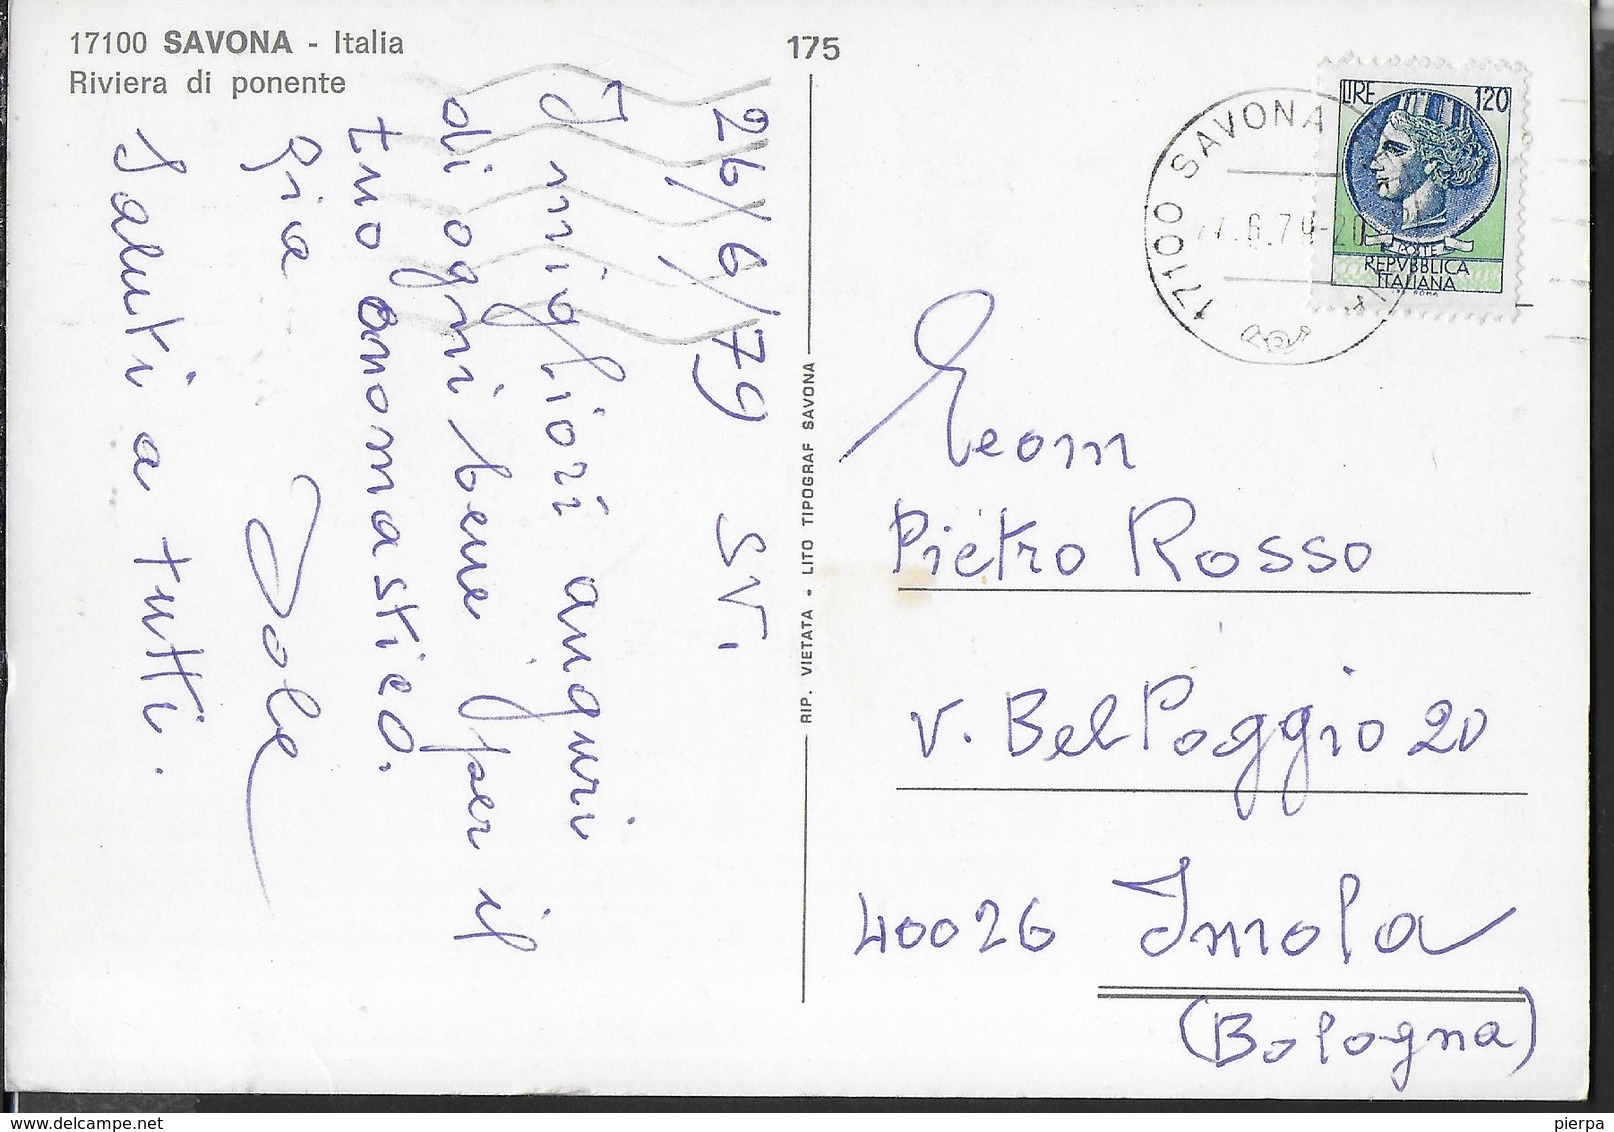 17100 SAVONA - Italia
Riviera di ponente
175
26/6/79 SV.
I migliori auguri
di ogni bene per il
tuo onomastico.
Gia Iole
Saluti a tutti.
RIP. VIETATA - LITO TIPOGRAF SAVONA
17100 SAVONA
.6.79-20
LIRE 120
POSTE
REPVBBLICA
ITALIANA
Geom
Pietro Rosso
V. BelPoggio 20
40026 Imola
(Bologna)
pierpa